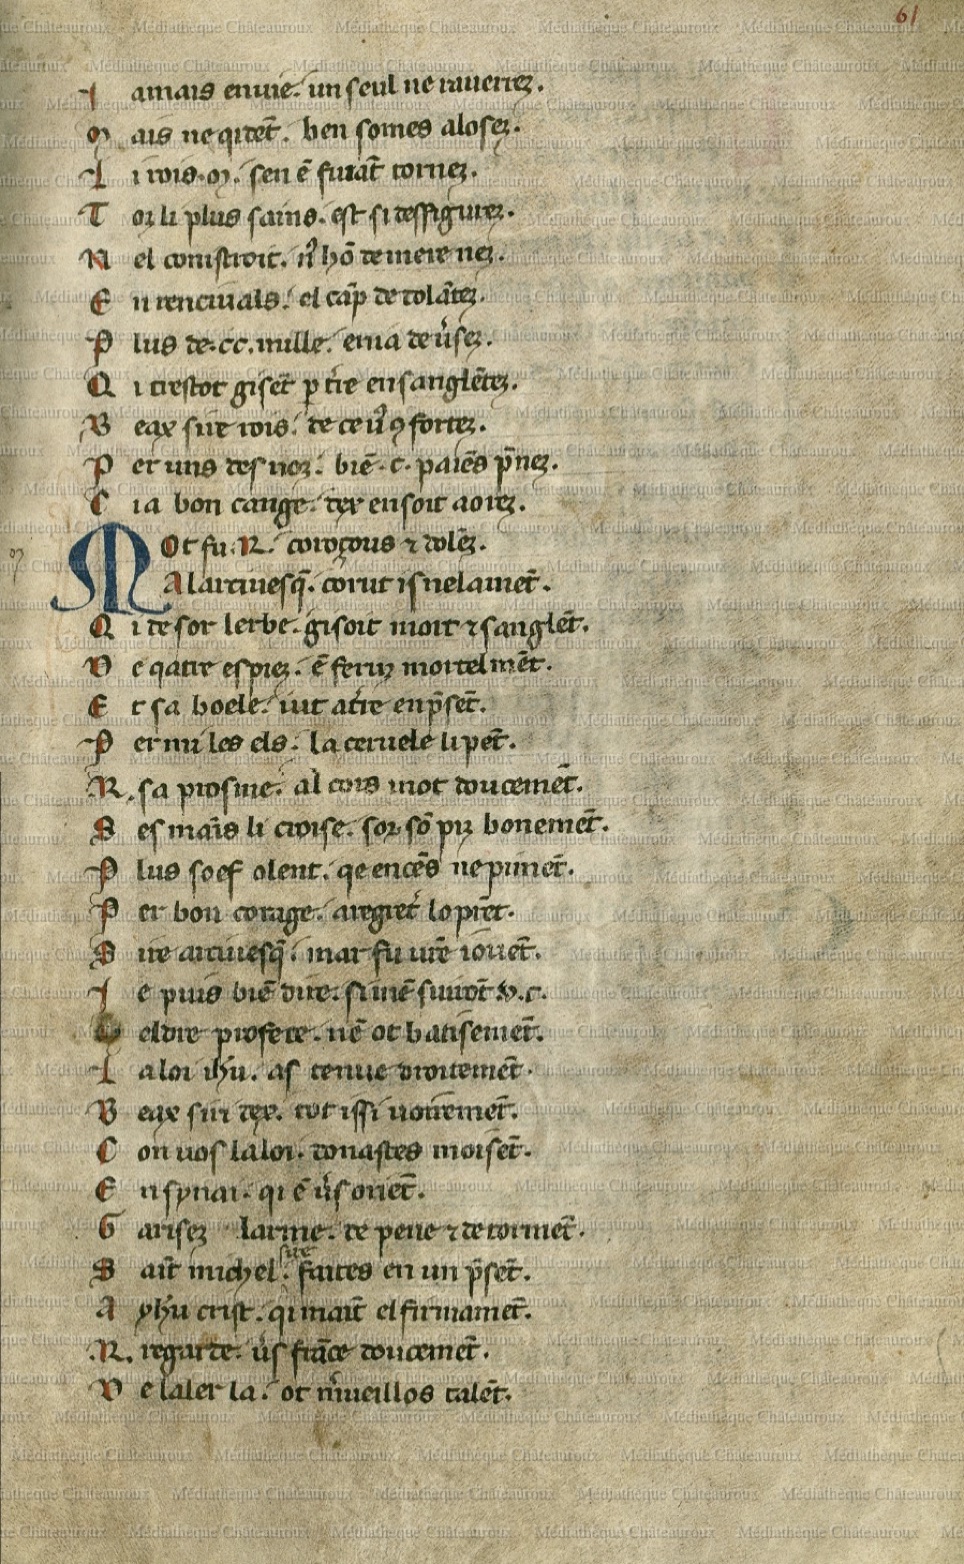 61
I amais en uie. un seul ne uuerrez.
M ais ne qidēt. ben somes alosez.
L i rois .M. sen ē fuiāt tornez.
T or li plus sains. est si deffigurez.
N el conistroit. nͥ hō de mere nez.
E n renciuals. el cāp de dolātez.
P lus de .cc. mille. en i a de ūsez.
Q i trestot gisēt p tr̄e ensanglētez.
B eax sire rois. de ce uͦ 9fortez.
P er uns des noz. biē .c. paiēs p̄nez.
C i a bon cange. dex en soit aorez.
M Ot fu .R. coroços ⁊ dolēz.
A larciuesq̄. corut isnelamēt.
Q i desor lerbe. gisoit mort ⁊ sanglēt.
D e qatre espiez. ē feruz mortelmēt.
E t sa boele. iut a tr̄e en p̄sēt.
P er mi les els. la ceruele li pēt.
R. sa prosme. al cors mot doucemēt.
S es maīs li croise. sor sō piz bonemēt.
P lus soef olent. qe encēs ne pimēt.
P er bon corage. a regreť lo pīēt.
S ire arciuesq̄. mar fu ur̄e iouēt.
I e puis biē dire. si mē siurōt .v.c.
C el dre profete. nē ot batisemēt.
L a loi ihū. as tenue droitemēt.
B eax sire dex. tot issi uoirēmēt.
C on uos la loi. donastes moisēt.
E n synai. qi ē ūs oriēt.
G arisez larme. de pene ⁊ de tormēt.
S aīt michel. sire faites en un p̄sēt.
A yhū crist. qi maīt el firmamēt.
.R. regarde. ūs frāce doucemēt.
D e laler la. ot mͥueillos talēt.
Médiathèque Châteauroux